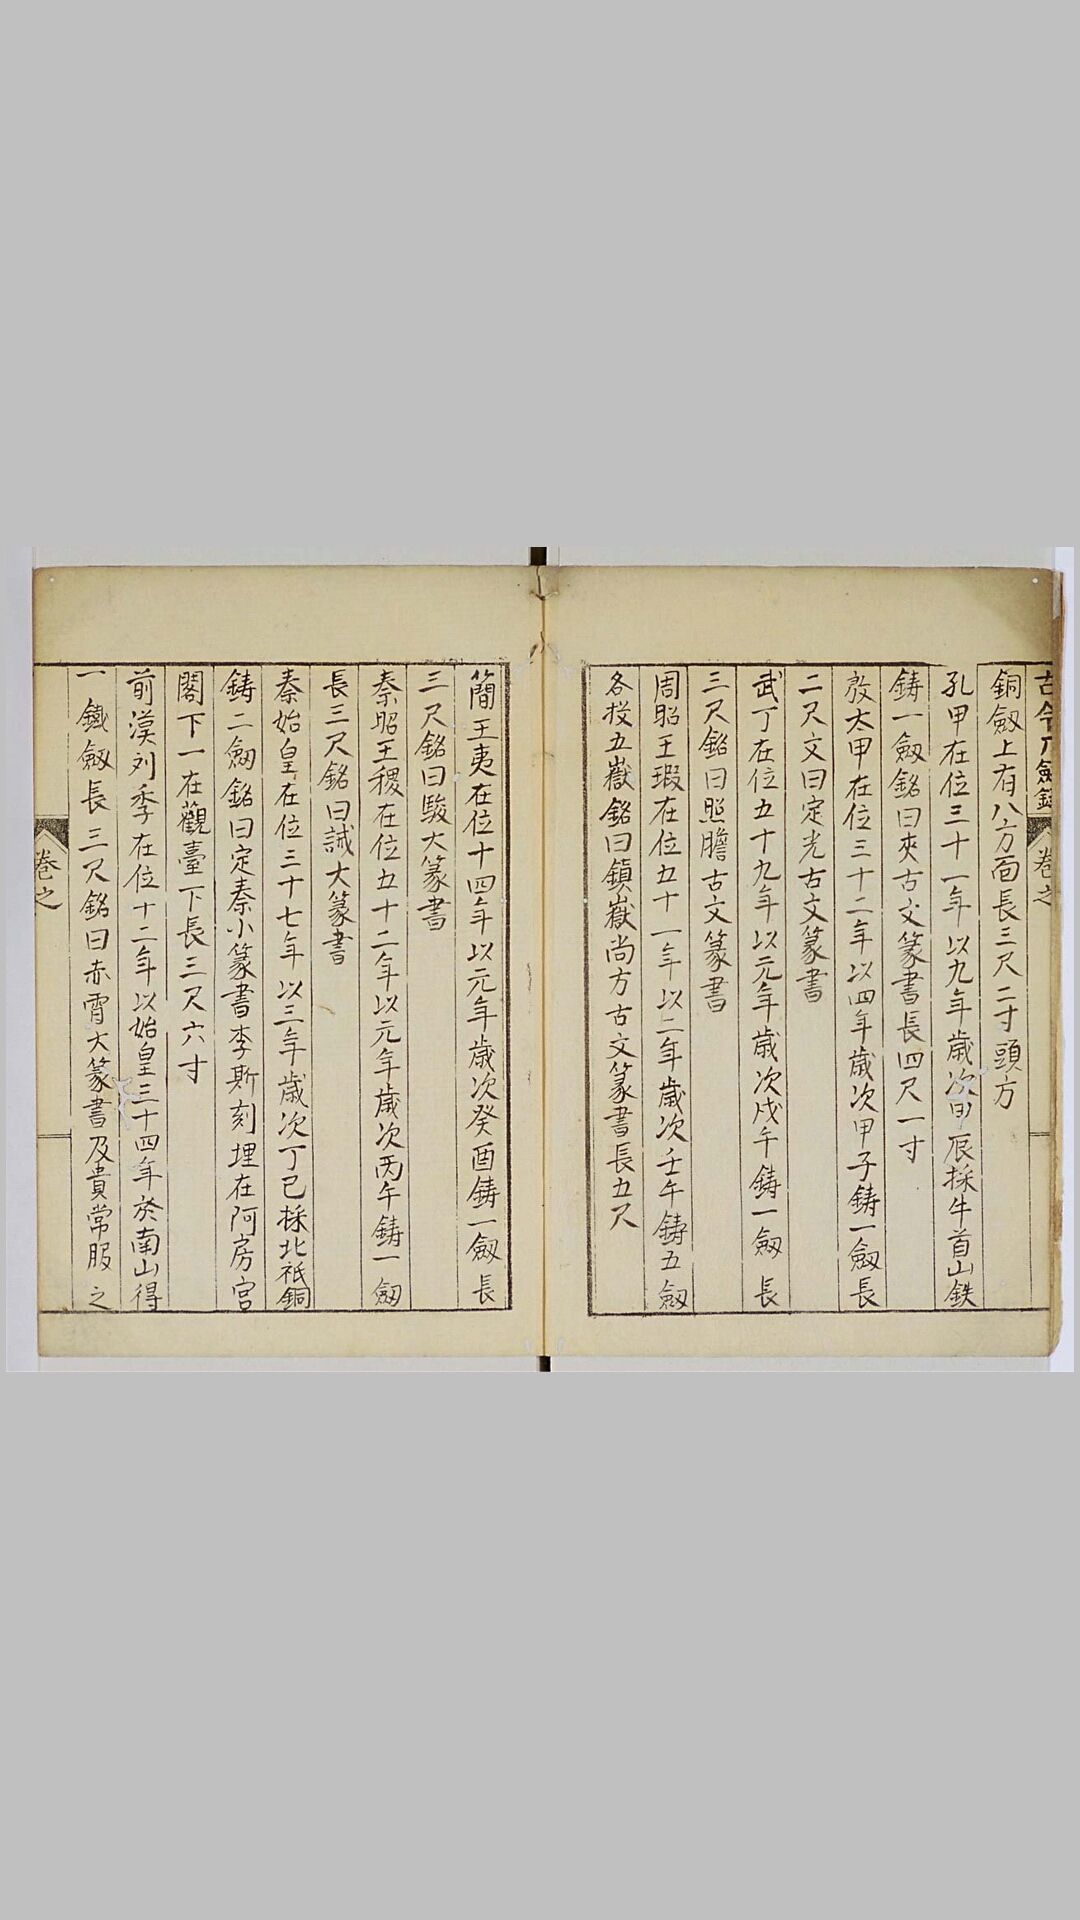 古今刀劍錄 卷之
銅劔上有八方面長三尺二寸頭方
孔甲在位三十一年以九年歲次甲辰採牛首山鉄
鋳一劔銘曰夾古文篆書長四尺一寸
殷太甲在位三十二年以四年歲次甲子鋳一劔長
二尺文曰定光古文篆書
武丁在位五十九年以元年歲次戊午鋳一劔長
三尺銘曰照膽古文篆書
周昭王瑕在位五十一年以二年歲次壬午鋳五劔
各投五嶽銘曰鎮嶽尚方古文篆書長五尺
簡王夷在位十四年以元年歲次癸酉鋳一劔長
三尺銘曰駿大篆書
秦昭王稷在位五十二年以元年歲次丙午鋳一劔
長三尺銘曰誡大篆書
秦始皇在位三十七年以三年歲次丁巳採北祇銅
鋳二劔銘曰定秦小篆書李斯刻埋在阿房宮
閣下一在觀臺下長三尺六寸
前漢刘季在位十二年以始皇三十四年於南山得
一鐵劔長三尺銘曰赤霄大篆書及貴常服之
卷之